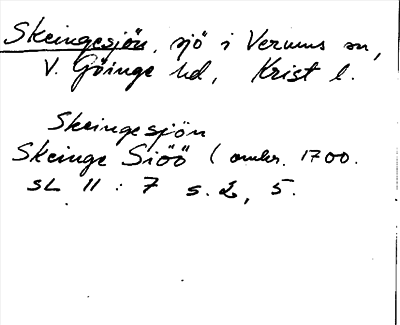 Skeingesjön, sjö i Verums sn,
V. Göinge hd, Krist l.
Skeingesjön
Skeinge Siöö (omkr. 1700.
SL 11 : 7 s. 2, 5.